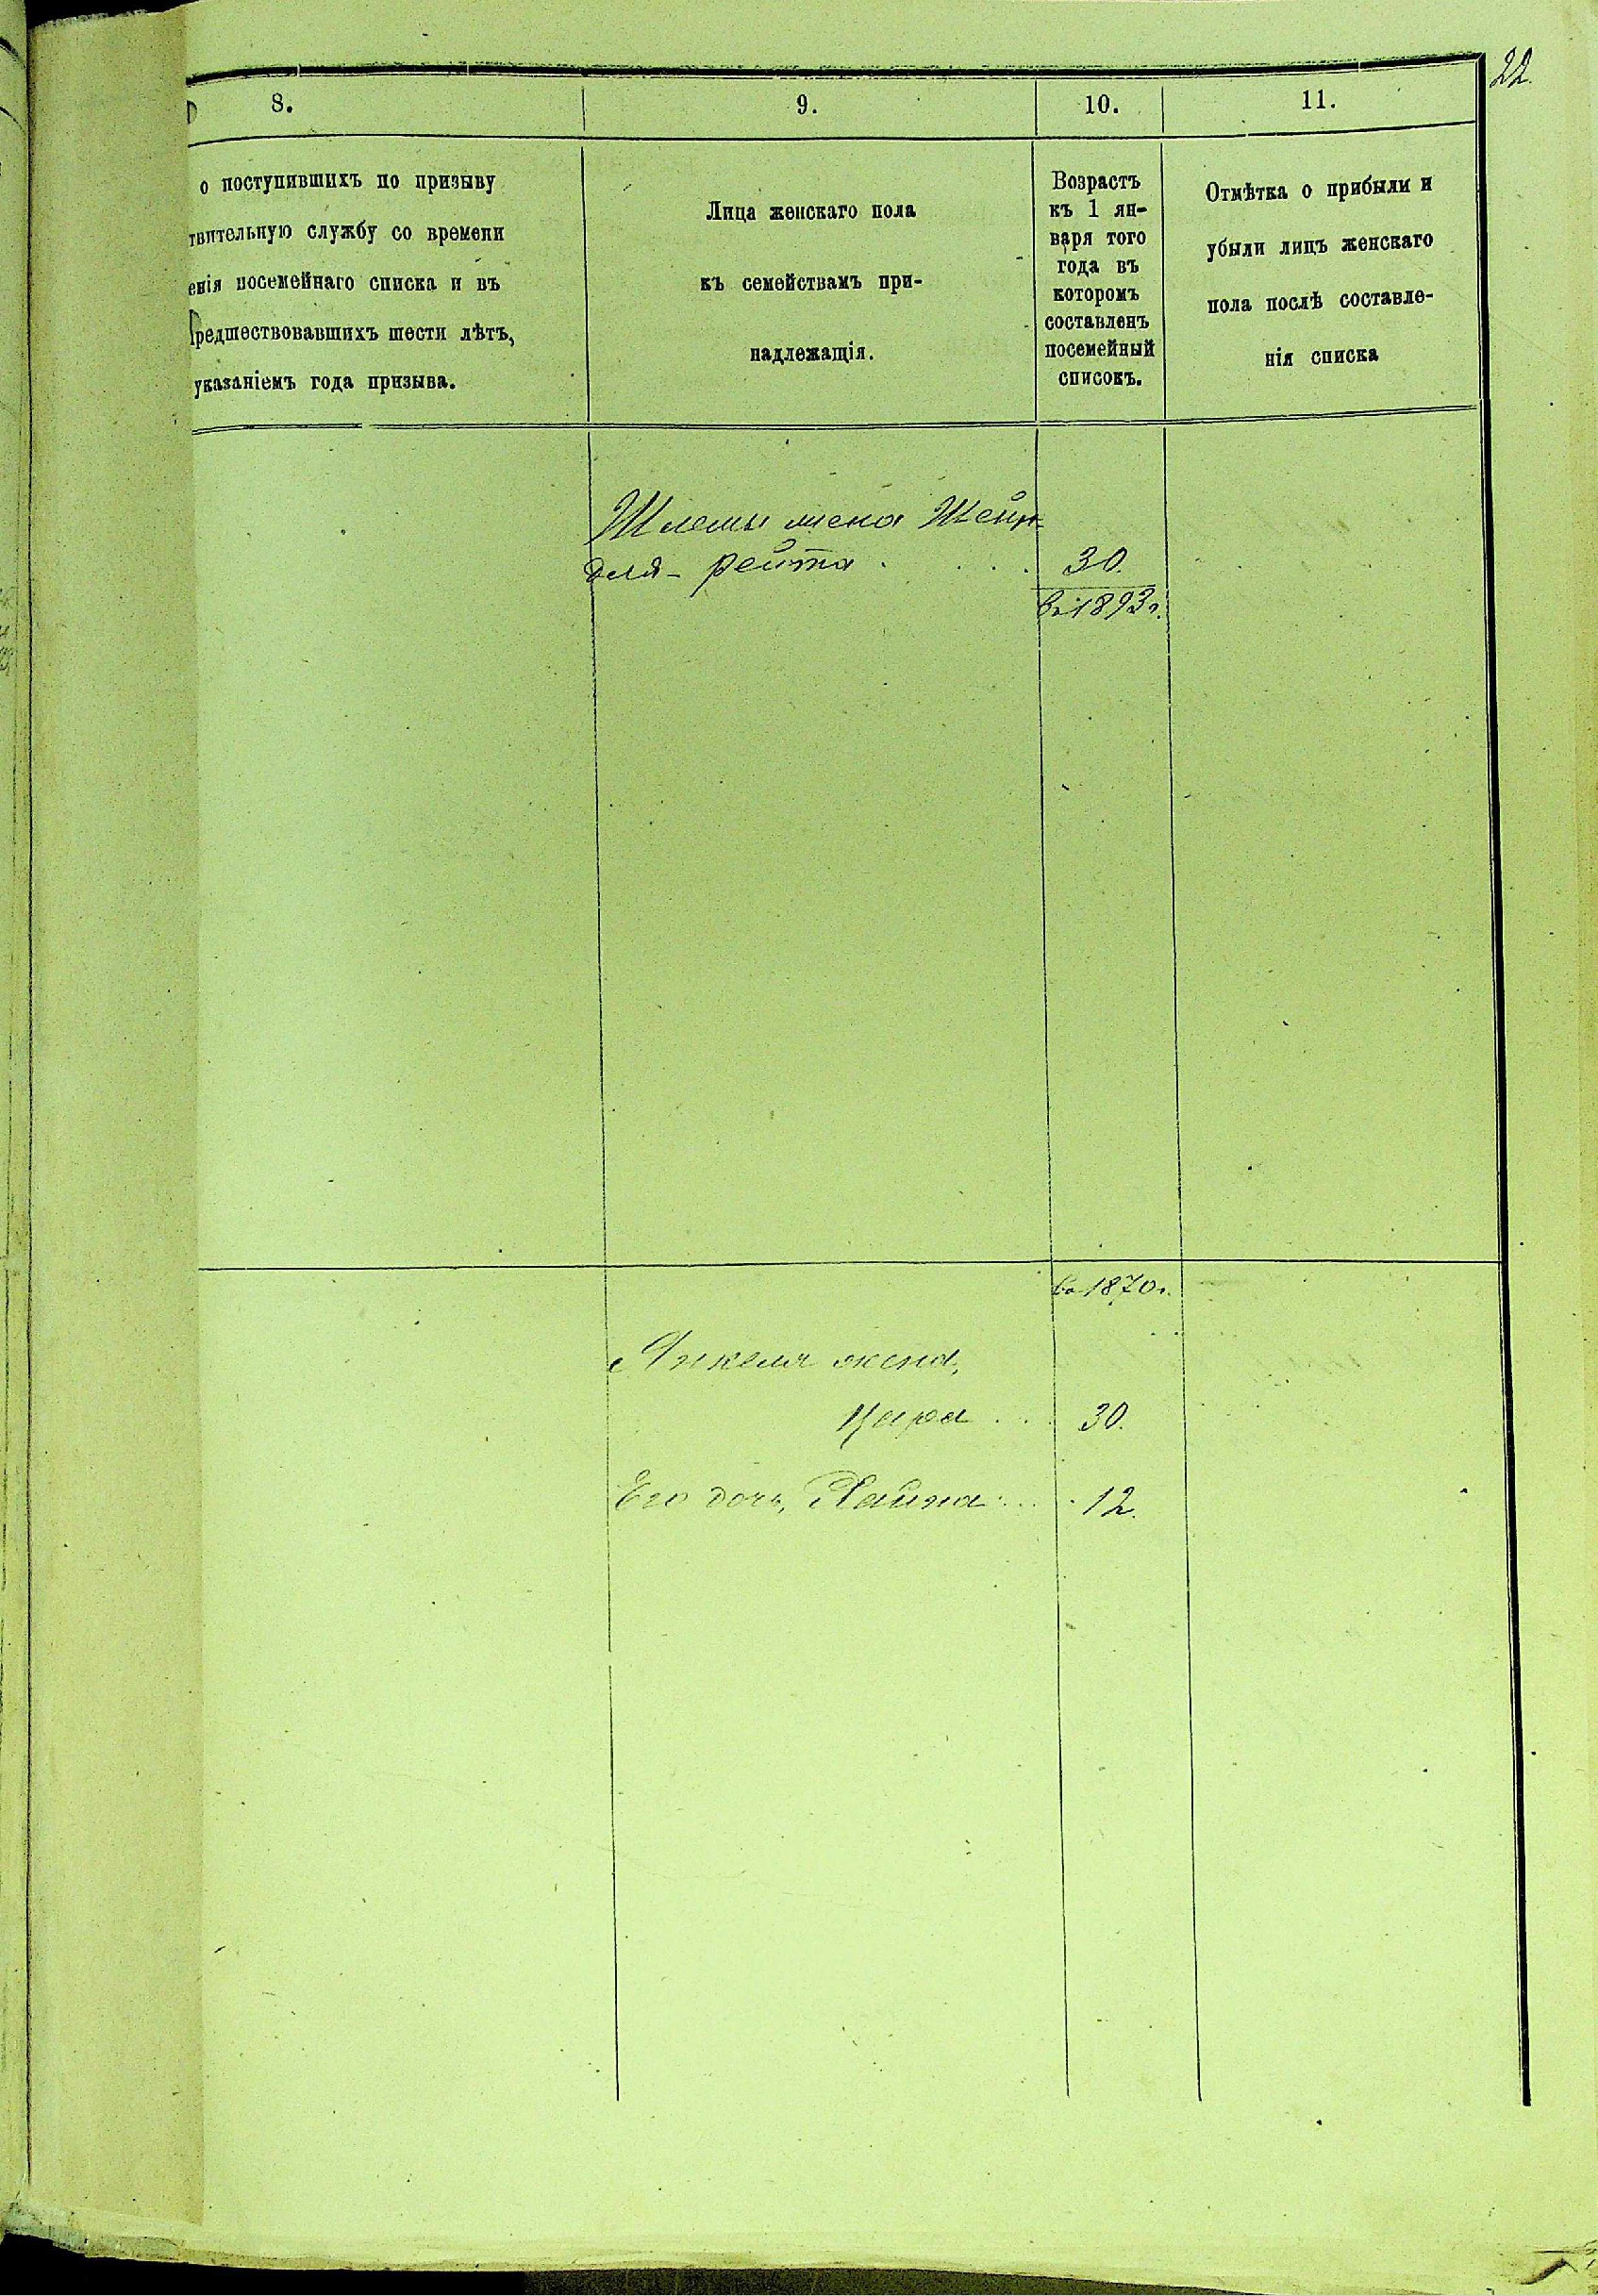 22.
8.
9.
10.
11.
о поступившихъ по призыву
твительную службу со времени
енія посемейнаго списка и въ
редшествовавшихъ шести лѣтъ,
указаніемъ года призыва.
Лица женскаго пола
къ семействамъ при-
надлежащія.
Возрастъ
къ 1 ян-
варя того
года въ
которомъ
составленъ
посемейный
списокъ.
Отмѣтка о прибыли и
убыли лицъ женскаго
пола послѣ составле-
нія списка
Шлемы жена Шейн-
деля-Рейтга . . . . 30.
въ 1893 г.
въ 1870 г.
Янкеля жена,
Цара . . . 30.
Его дочь, Хайка . . . 12.